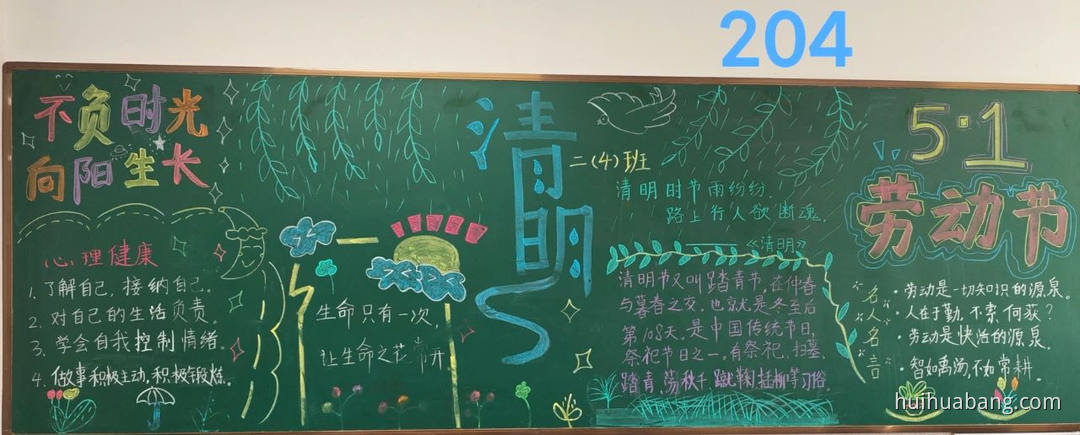 204
不负时光
向阳生长
心理健康
1. 了解自己, 接纳自己.
2. 对自己的生活负责
3. 学会自我控制情绪.
4. 做事积极主动,积极锻炼.
生命只有一次,
让生命之花常开
清明
二(4)班
清明时节雨纷纷
路上行人欲断魂.
——《清明》
清明节又叫踏青节,在仲春
与暮春之交,也就是冬至后
第108天.是中国传统节日,
祭祀节日之一,有祭祀、扫墓、
踏青、荡秋千、蹴鞠、挂柳等习俗.
5·1
劳动节
名人名言
·劳动是一切知识的源泉.
·人在于勤,不索何获?
·劳动是快活的源泉.
·智如禹汤,不如常耕.
huihuabang.com